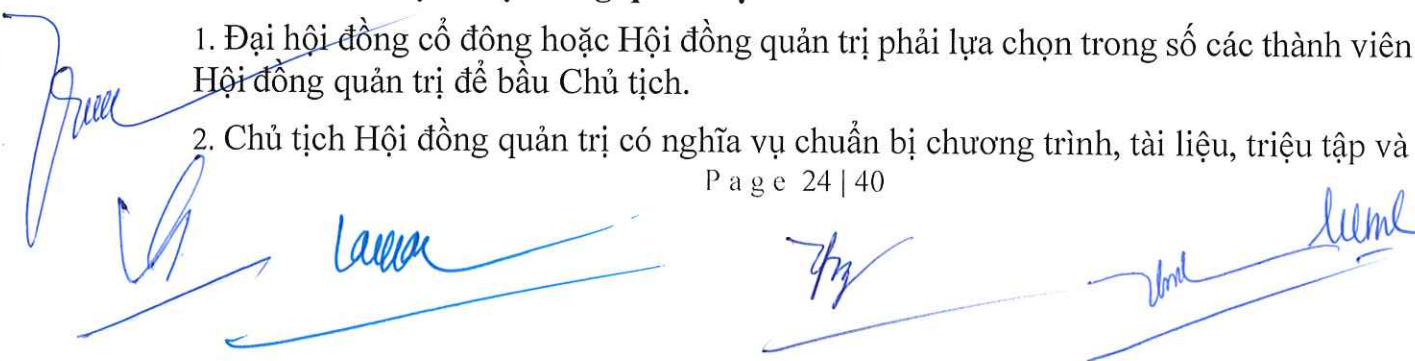 1. Đại hội đồng cổ đông hoặc Hội đồng quản trị phải lựa chọn trong số các thành viên
Hội đồng quản trị để bầu Chủ tịch.
2. Chủ tịch Hội đồng quản trị có nghĩa vụ chuẩn bị chương trình, tài liệu, triệu tập và
Page 24 | 40